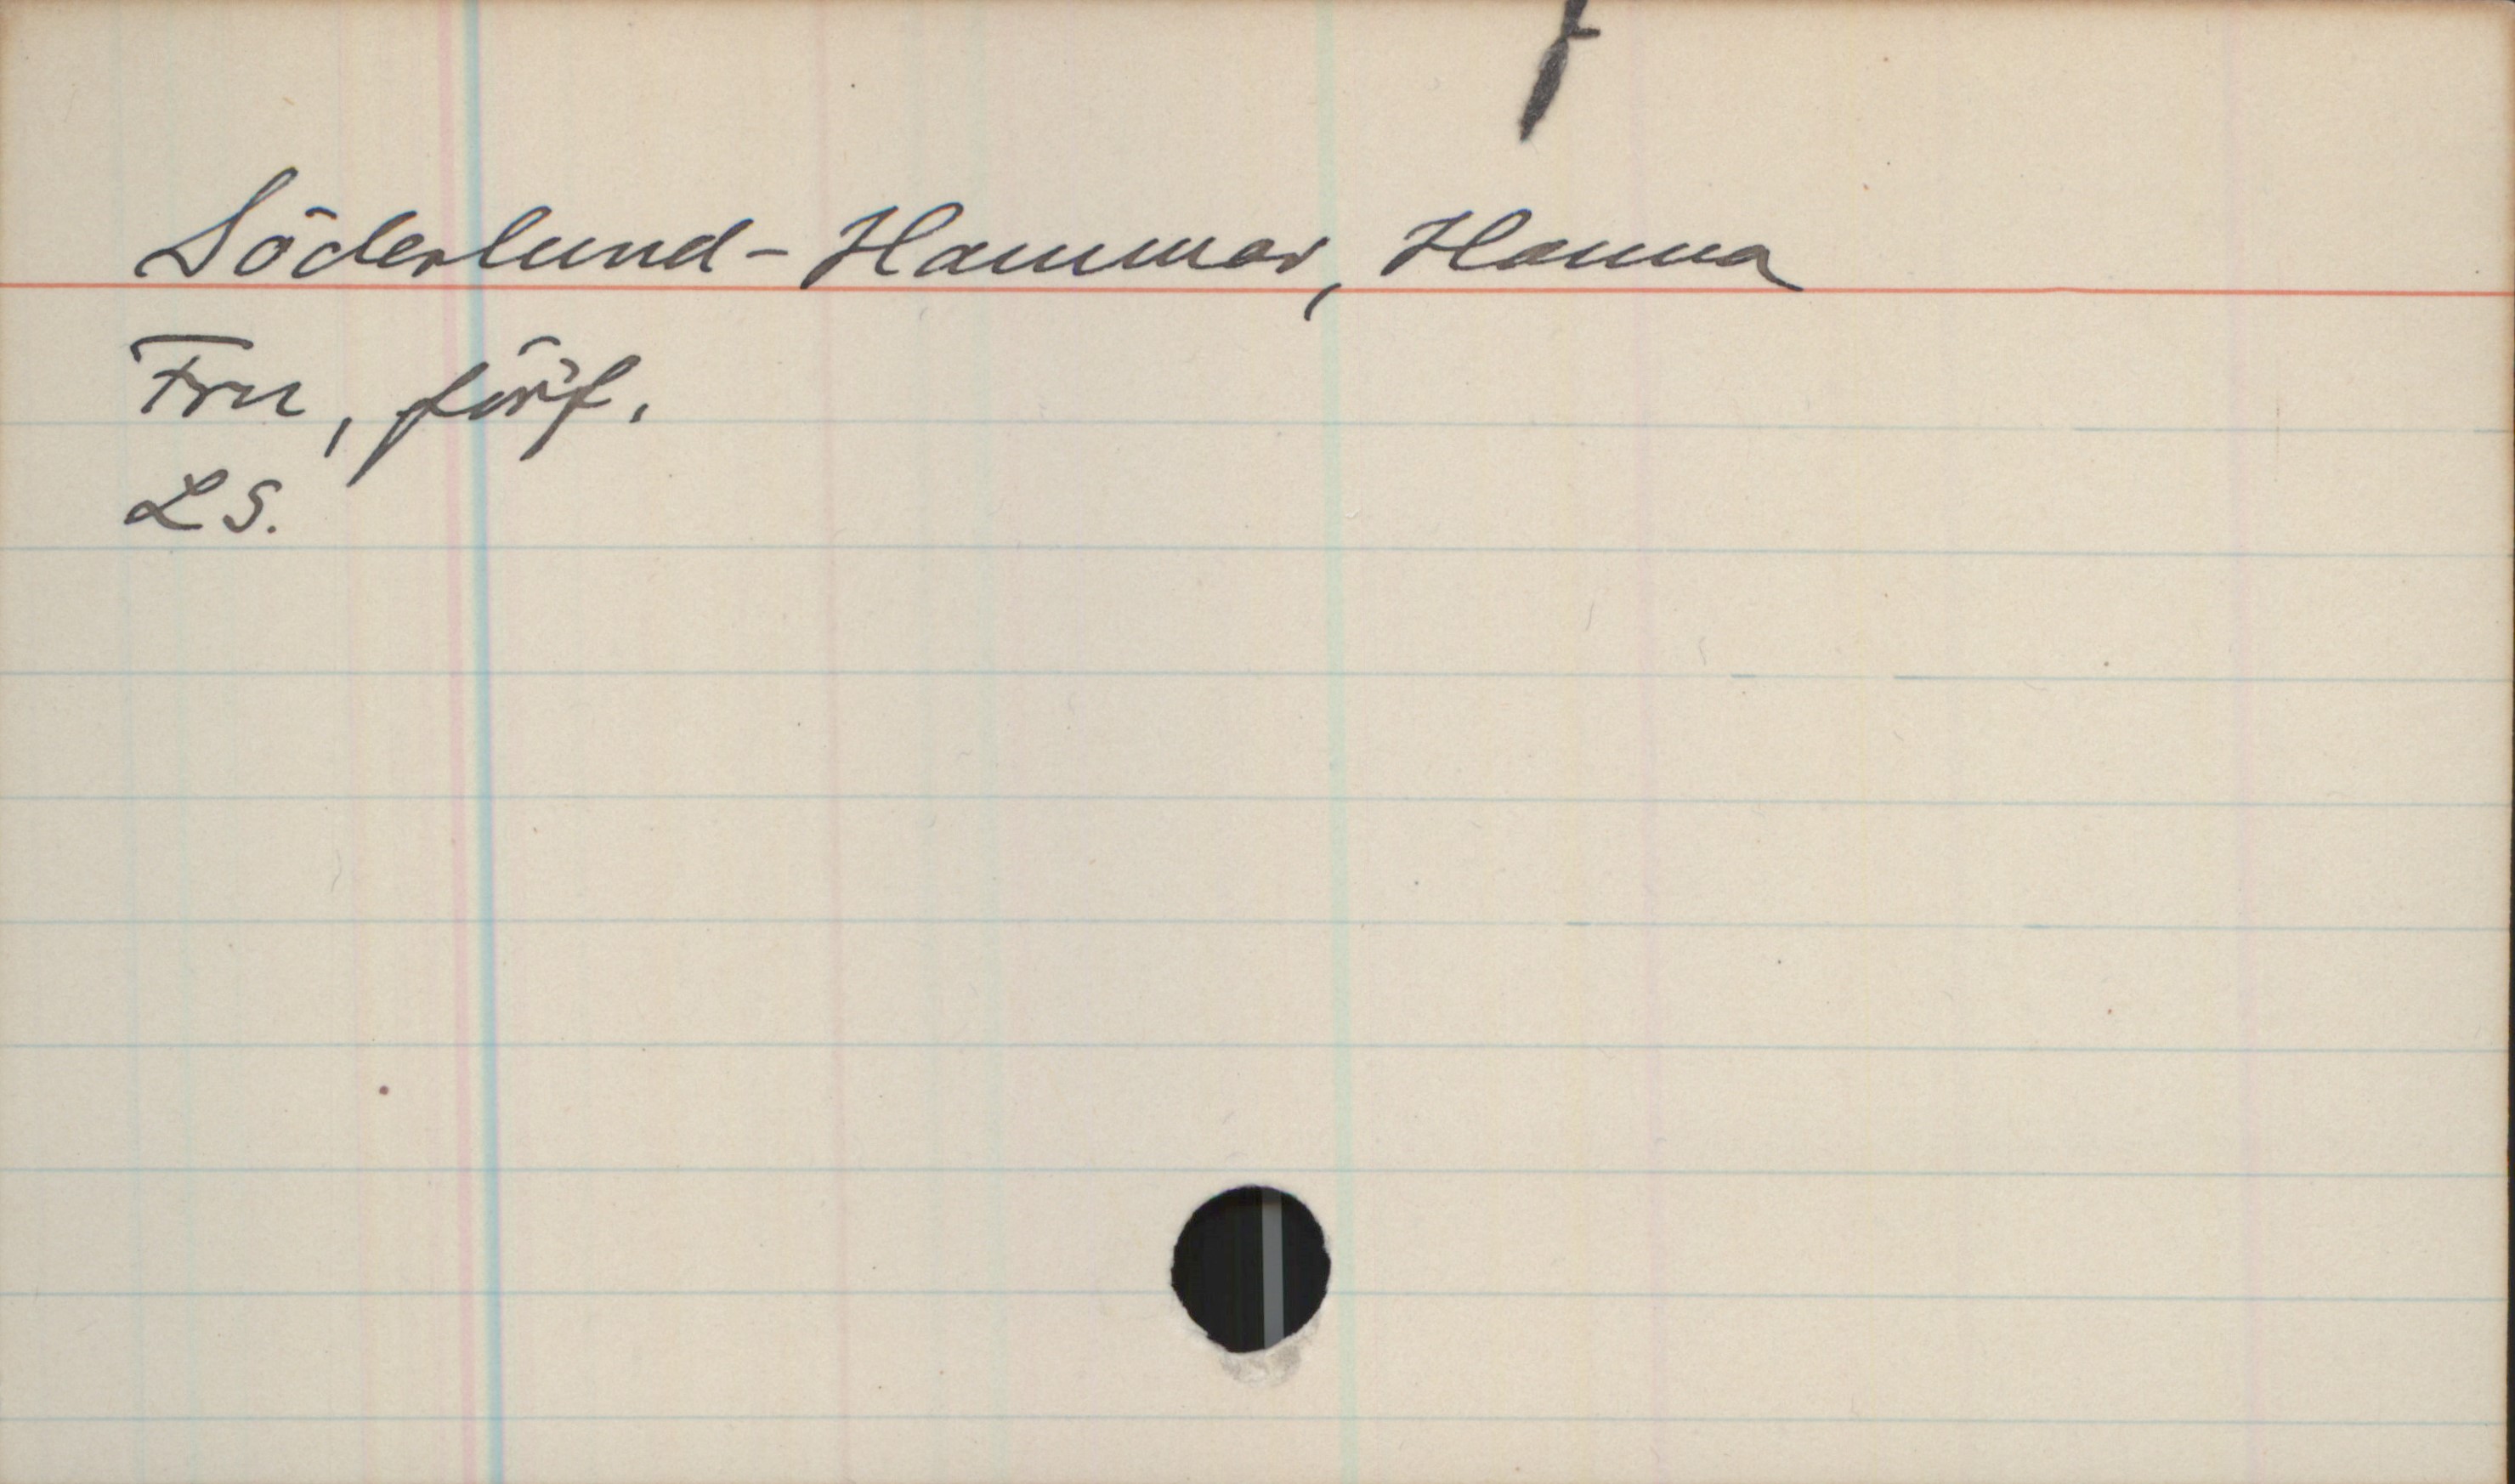 Söderlund-Hammar, Hanna
Fru, förf.
LS.